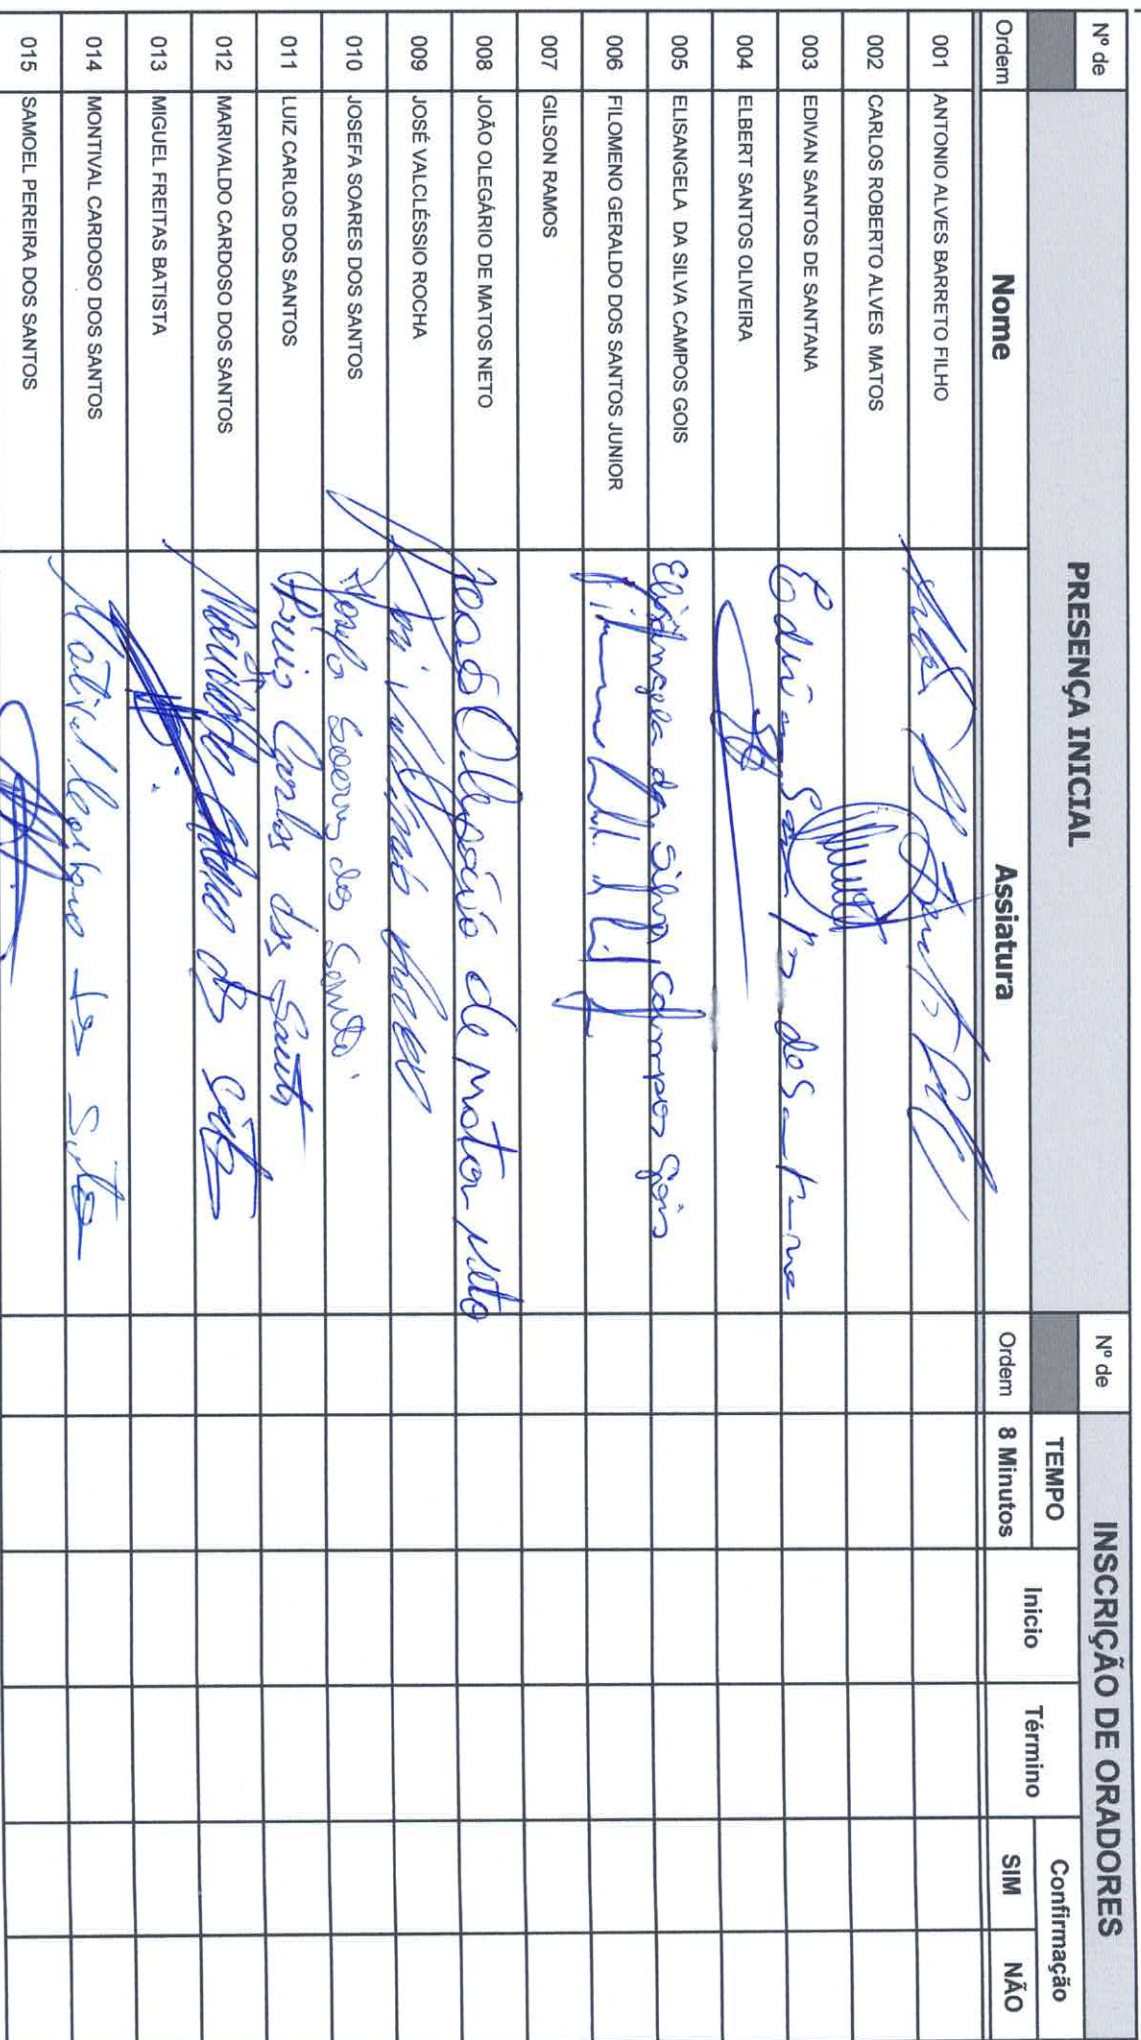 Nº de PRESENÇA INICIAL Nº de INSCRIÇÃO DE ORADORES
TEMPO Confirmação
Ordem Nome Assiatura Ordem 8 Minutos Inicio Término SIM NÃO
001 ANTONIO ALVES BARRETO FILHO
002 CARLOS ROBERTO ALVES MATOS
003 EDIVAN SANTOS DE SANTANA Edivan Santos de Santana
004 ELBERT SANTOS OLIVEIRA
005 ELISANGELA DA SILVA CAMPOS GOIS Elisângela da Silva Campos Gois
006 FILOMENO GERALDO DOS SANTOS JUNIOR
007 GILSON RAMOS
008 JOÃO OLEGÁRIO DE MATOS NETO João Olegário de Matos Neto
009 JOSÉ VALCLÉSSIO ROCHA
010 JOSEFA SOARES DOS SANTOS Josefa Soares dos Santos
011 LUIZ CARLOS DOS SANTOS Luiz Carlos dos Santos
012 MARIVALDO CARDOSO DOS SANTOS
013 MIGUEL FREITAS BATISTA
014 MONTIVAL CARDOSO DOS SANTOS
015 SAMOEL PEREIRA DOS SANTOS